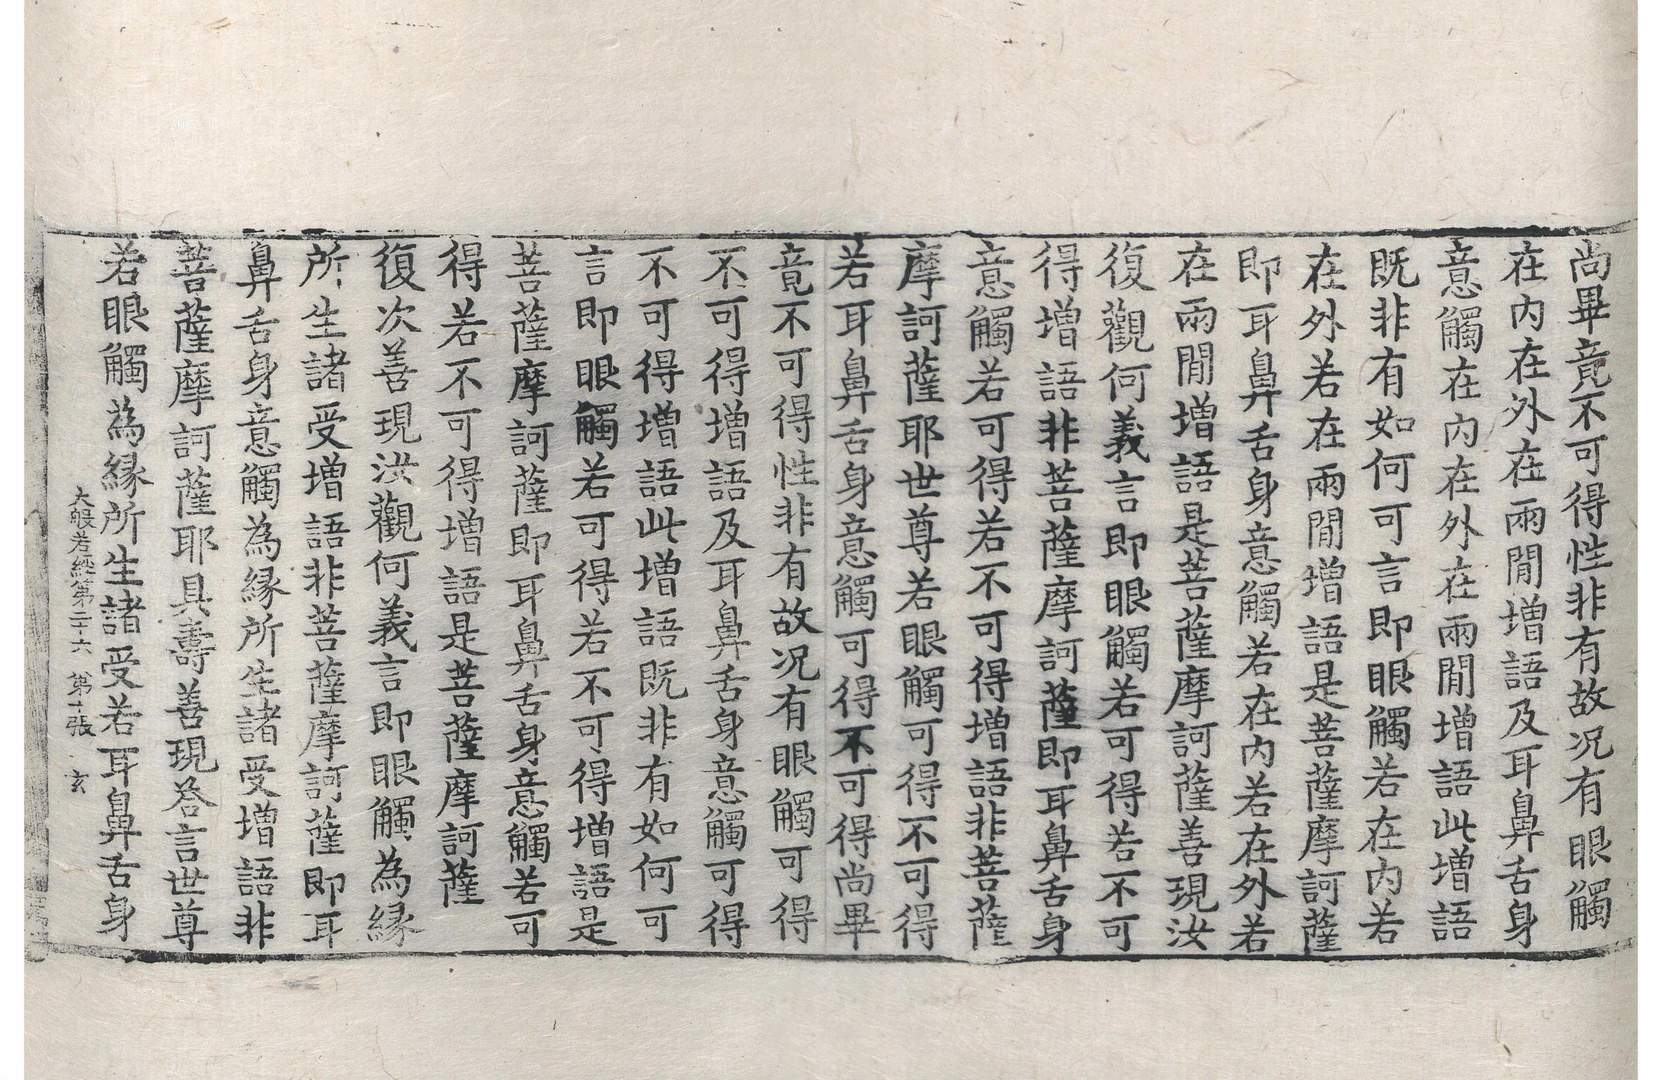 尚畢竟不可得性非有故况有眼觸
在内在外在兩閒增語及耳鼻舌身
意觸在内在外在兩閒增語此增語
旣非有如何可言即眼觸若在内若
在外若在兩閒增語是菩薩摩訶薩
即耳鼻舌身意觸若在内若在外若
在兩閒增語是菩薩摩訶薩善現汝
復觀何義言即眼觸若可得若不可
得增語非菩薩摩訶薩即耳鼻舌身
意觸若可得若不可得增語非菩薩
摩訶薩耶世尊若眼觸可得不可得
若耳鼻舌身意觸可得不可得尚畢
竟不可得性非有故况有眼觸可得
不可得增語及耳鼻舌身意觸可得
不可得增語此增語旣非有如何可
言即眼觸若可得若不可得增語是
菩薩摩訶薩即耳鼻舌身意觸若可
得若不可得增語是菩薩摩訶薩
復次善現汝觀何義言即眼觸為緣
所生諸受增語非菩薩摩訶薩即耳
鼻舌身意觸為緣所生諸受增語非
菩薩摩訶薩耶具壽善現荅言世尊
若眼觸為緣所生諸受若耳鼻舌身
大般若經第二十六 第十張 玄